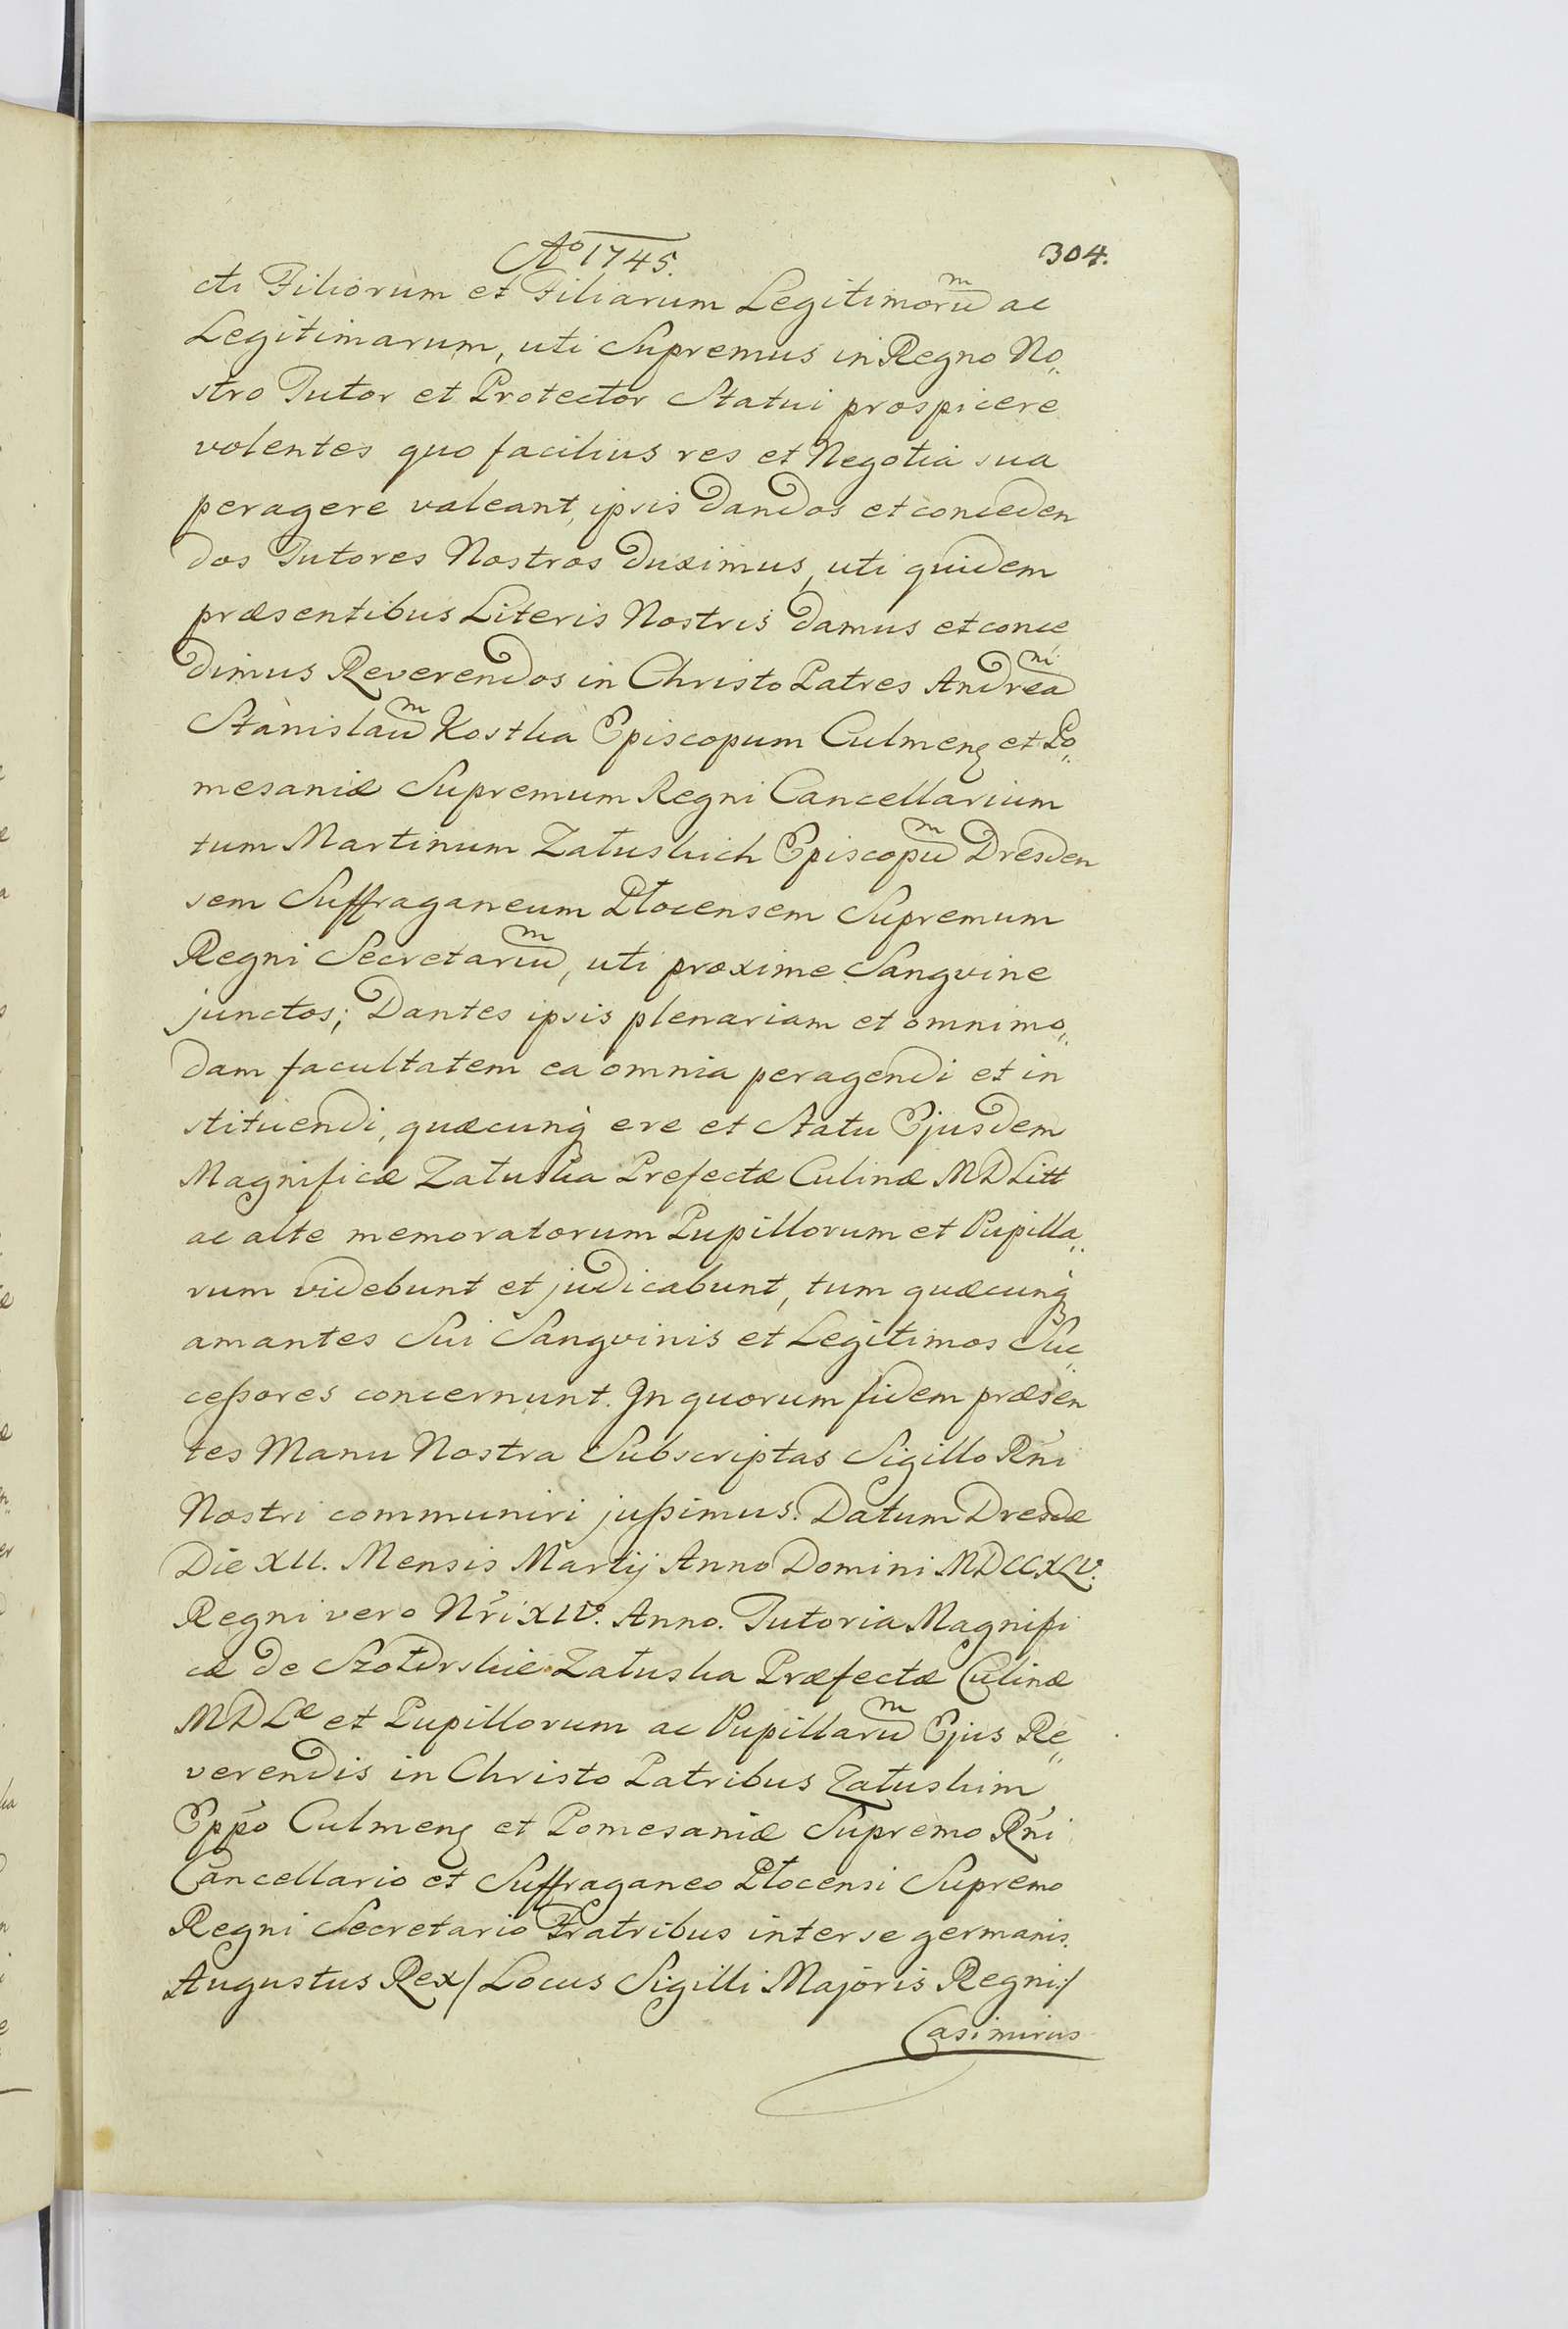 Aº 1745.
304.
cti Filiorum et Filiarum Legitimorum ac
Legitimarum, uti Supremus in Regno No„
stro Tutor et Protector Statui prospicere
volentes quo facilius res et Negotia sua
peragere valeant, ipsis dandos et conceden
dos Tutores Nostros duximus, uti quidem
præsentibus Literis Nostris damus et conce
dimus Reverendos in Christo Patres Andream
Stanislaum Kostka Episcopum Culmens et Po„
mesaniæ Supremum Regni Cancellarium
tum Martinum Załuskich Episcopum Dresden
sem Suffraganeum Płocensem Supremum
Regni Secretarium, uti proxime Sangvine
junctos; Dantes ipsis plenariam et omnimo„
dam facultatem ea omnia peragendi et in
stituendi, quæcunq ere et Statu Ejusdem
Magnificæ Załuska Prefectæ Culinæ MDLitt
ac alte memoratorum Pupillorum et Pupilla„
rum videbunt et judicabunt, tum quæcunq
amantes Sui Sangvinis et Legitimos Suc„
ceßores concernunt. In quorum fidem præsen
tes Manu Nostra Subscriptas Sigillo Rńi
Nostri communiri jußimus. Datum Dresdæ
Die XII. Mensis Martij Anno Domini MDCCXLV.
Regni vero Nŕi XIIº. Anno. Tutoria Magnifi
cæ de Szołdrskie Załuska Præfectæ Culinæ
MDLæ et Pupillorum ac Pupillarum Ejus Re„
verendis in Christo Patribus Załuskim
Eppo Culmens et Pomesaniæ Supremo Rńi
Cancellario et Suffraganeo Płocensi Supremo
Regni Secretario Fratribus inter se germanis.
Augustus Rex/ Locus Sigilli Majoris Regni/
Casimirus